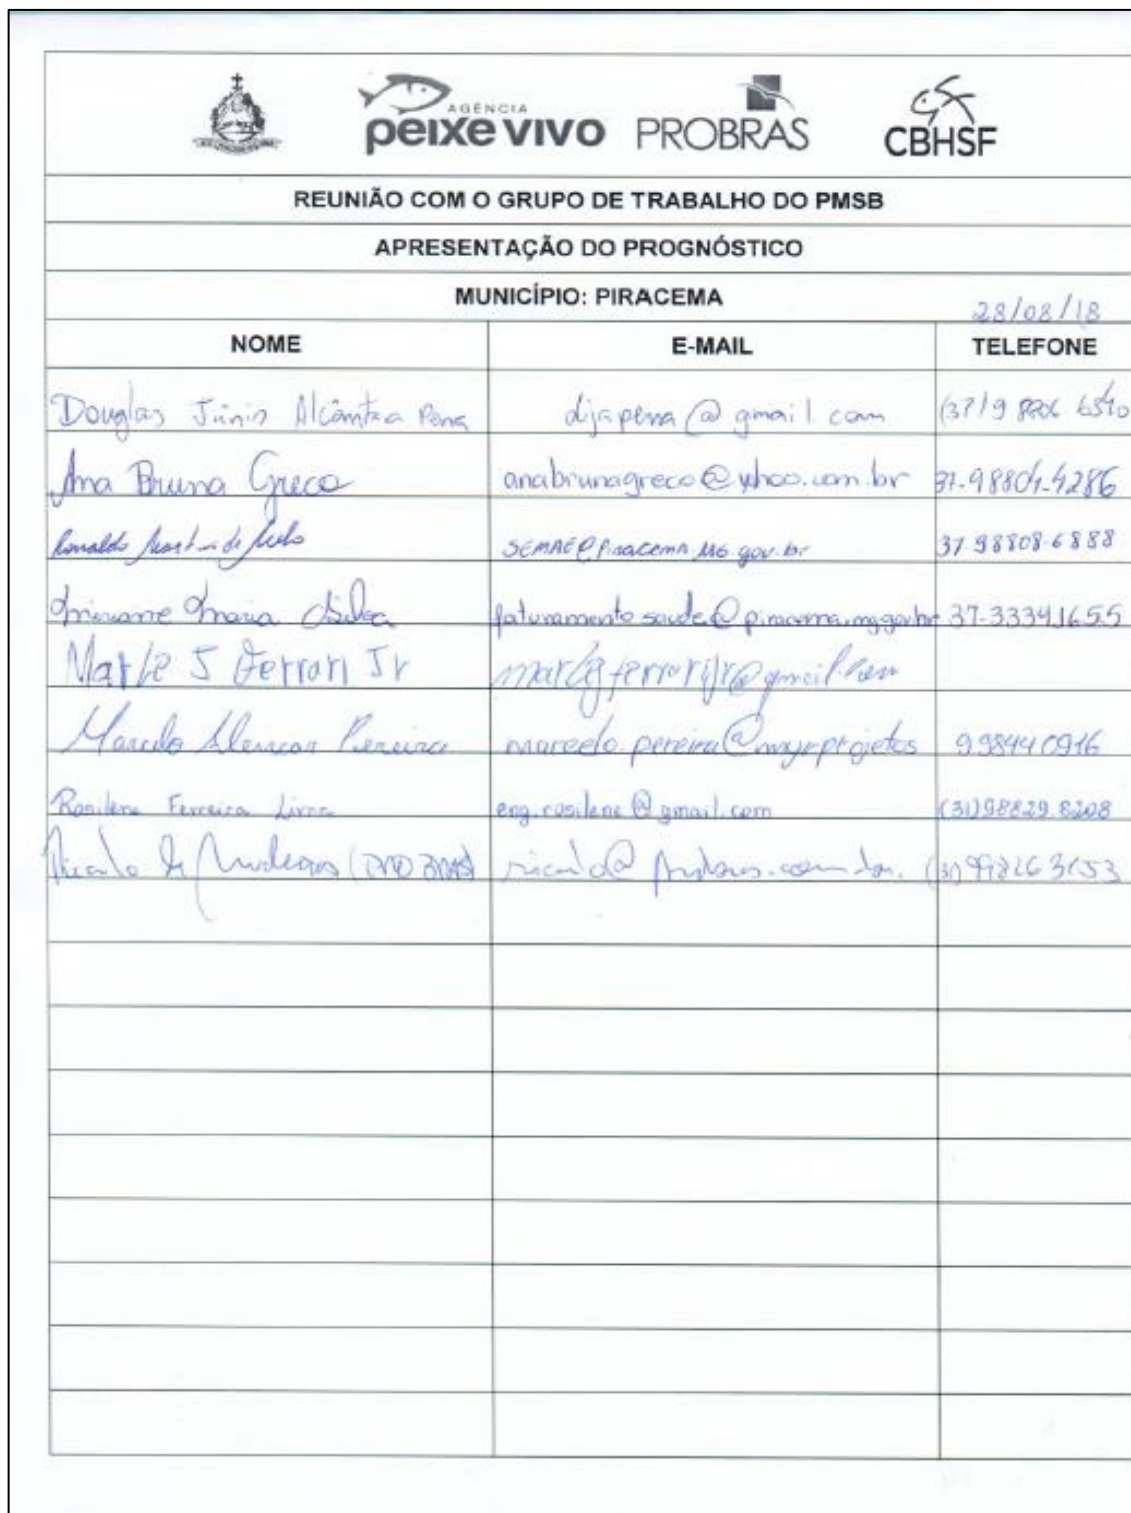 AGÊNCIA
peixe vivo PROBRAS CBHSF
REUNIÃO COM O GRUPO DE TRABALHO DO PMSB
APRESENTAÇÃO DO PROGNÓSTICO
MUNICÍPIO: PIRACEMA 28/08/18
NOME E-MAIL TELEFONE
Douglas Júnio Alcântra Pena djapena@gmail.com
Ana Bruna Greco anabrunagreco@yahoo.com.br 37-98804-4286
Ronaldo de Melo SEMAE@Piracema.MG.gov.br 37 98808-6888
Maria Silva faturamento.saude@piracema.mg.gov.br 37-33341655
J Ferrari Jr
Marcelo Alencar Pereira marcelo.pereira@myrprojetos 998440916
Rosilene Ferreira eng.rosilene@gmail.com (31)98829.8208
Ricardo de Medeiros